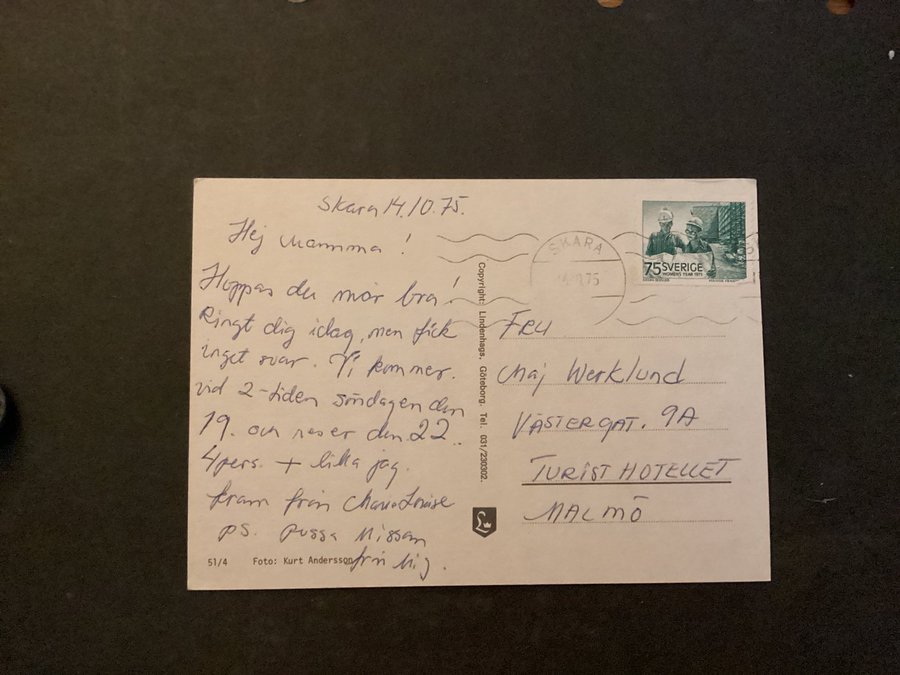 Skara 14.10.75.
Hej Mamma!
Hoppas du mår bra!
Ringt dig idag, men fick
inget svar. Vi kommer.
vid 2-tiden söndagen den
19. och reser den 22.
4pers. + lilla jag.
kram från Marie-Louise
ps. pussa Missan
från Mig.
51/4 Foto: Kurt Andersson
Copyright: Lindenhags, Göteborg. Tel. 031/230302.
SKARA
75
75 SVERIGE
WOMEN'S YEAR 1975
FRU
Maj Werklund
VÄSTERGAT. 9A
TURISTHOTELLET
MALMÖ